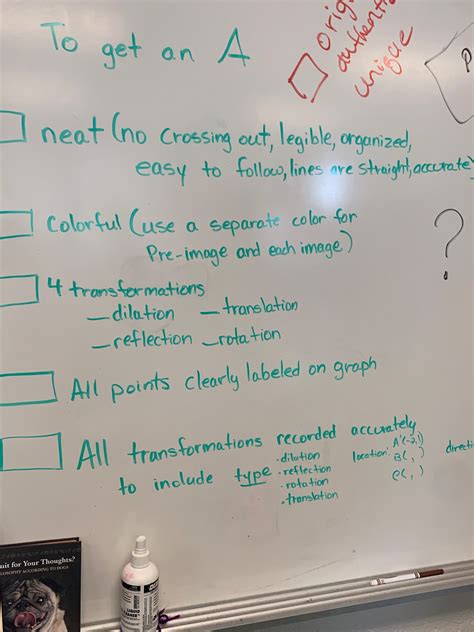 To get an A
orig
authenti
unique
P
neat (no crossing out, legible, organized,
easy to follow, lines are straight, accurate)
Colorful (use a separate color for
Pre-image and each image.)
?
4 transformations
—dilation —translation
—reflection —rotation
All points clearly labeled on graph
All transformations recorded accurately
to include type
·dilution
·reflection
·rotation
·translation
location: A'(-2,1)
B( , )
C( , )
directi
uit for Your Thoughts?
LOSOPHY ACCORDING TO DOGS
LIQUID